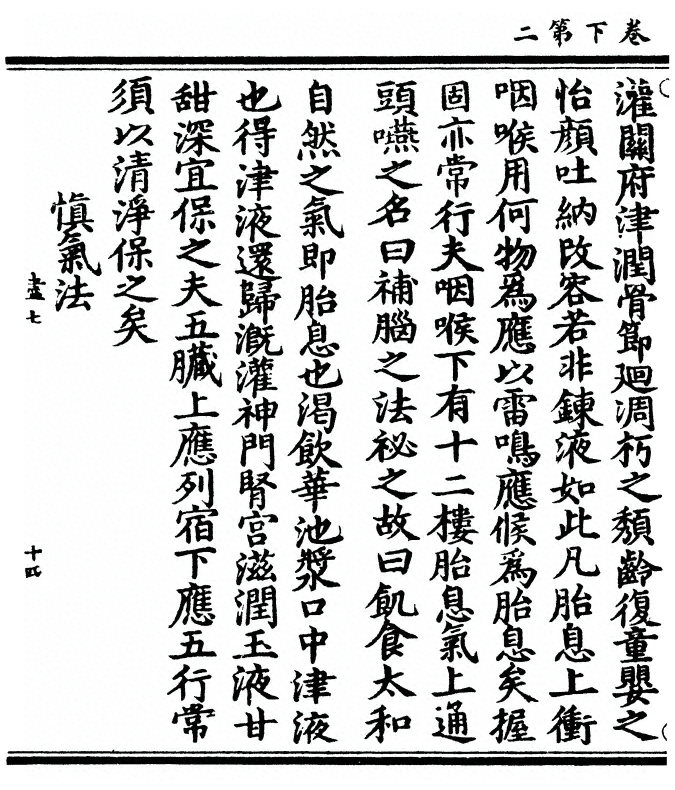 卷下第二
灌關府津潤骨節廻凋朽之頽齡復童嬰之
怡顏吐納改容若非鍊液如此凡胎息上衝
咽喉用何物爲應以雷鳴應候爲胎息矣握
固亦常行夫咽喉下有十二樓胎息氣上通
頭嚥之名曰補腦之法祕之故曰飢食太和
自然之氣即胎息也渴飲華池漿口中津液
也得津液還歸溉灌神門腎宮滋潤玉液甘
甜深宜保之夫五臟上應列宿下應五行常
須以清淨保之矣
愼氣法
盡七
十四